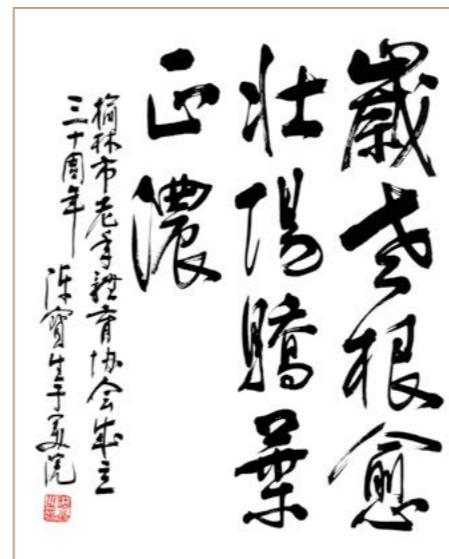 歲老根愈
壯陽驕葉
正濃
榆林市老年體育协会成立
三十周年 陈寶生于美院